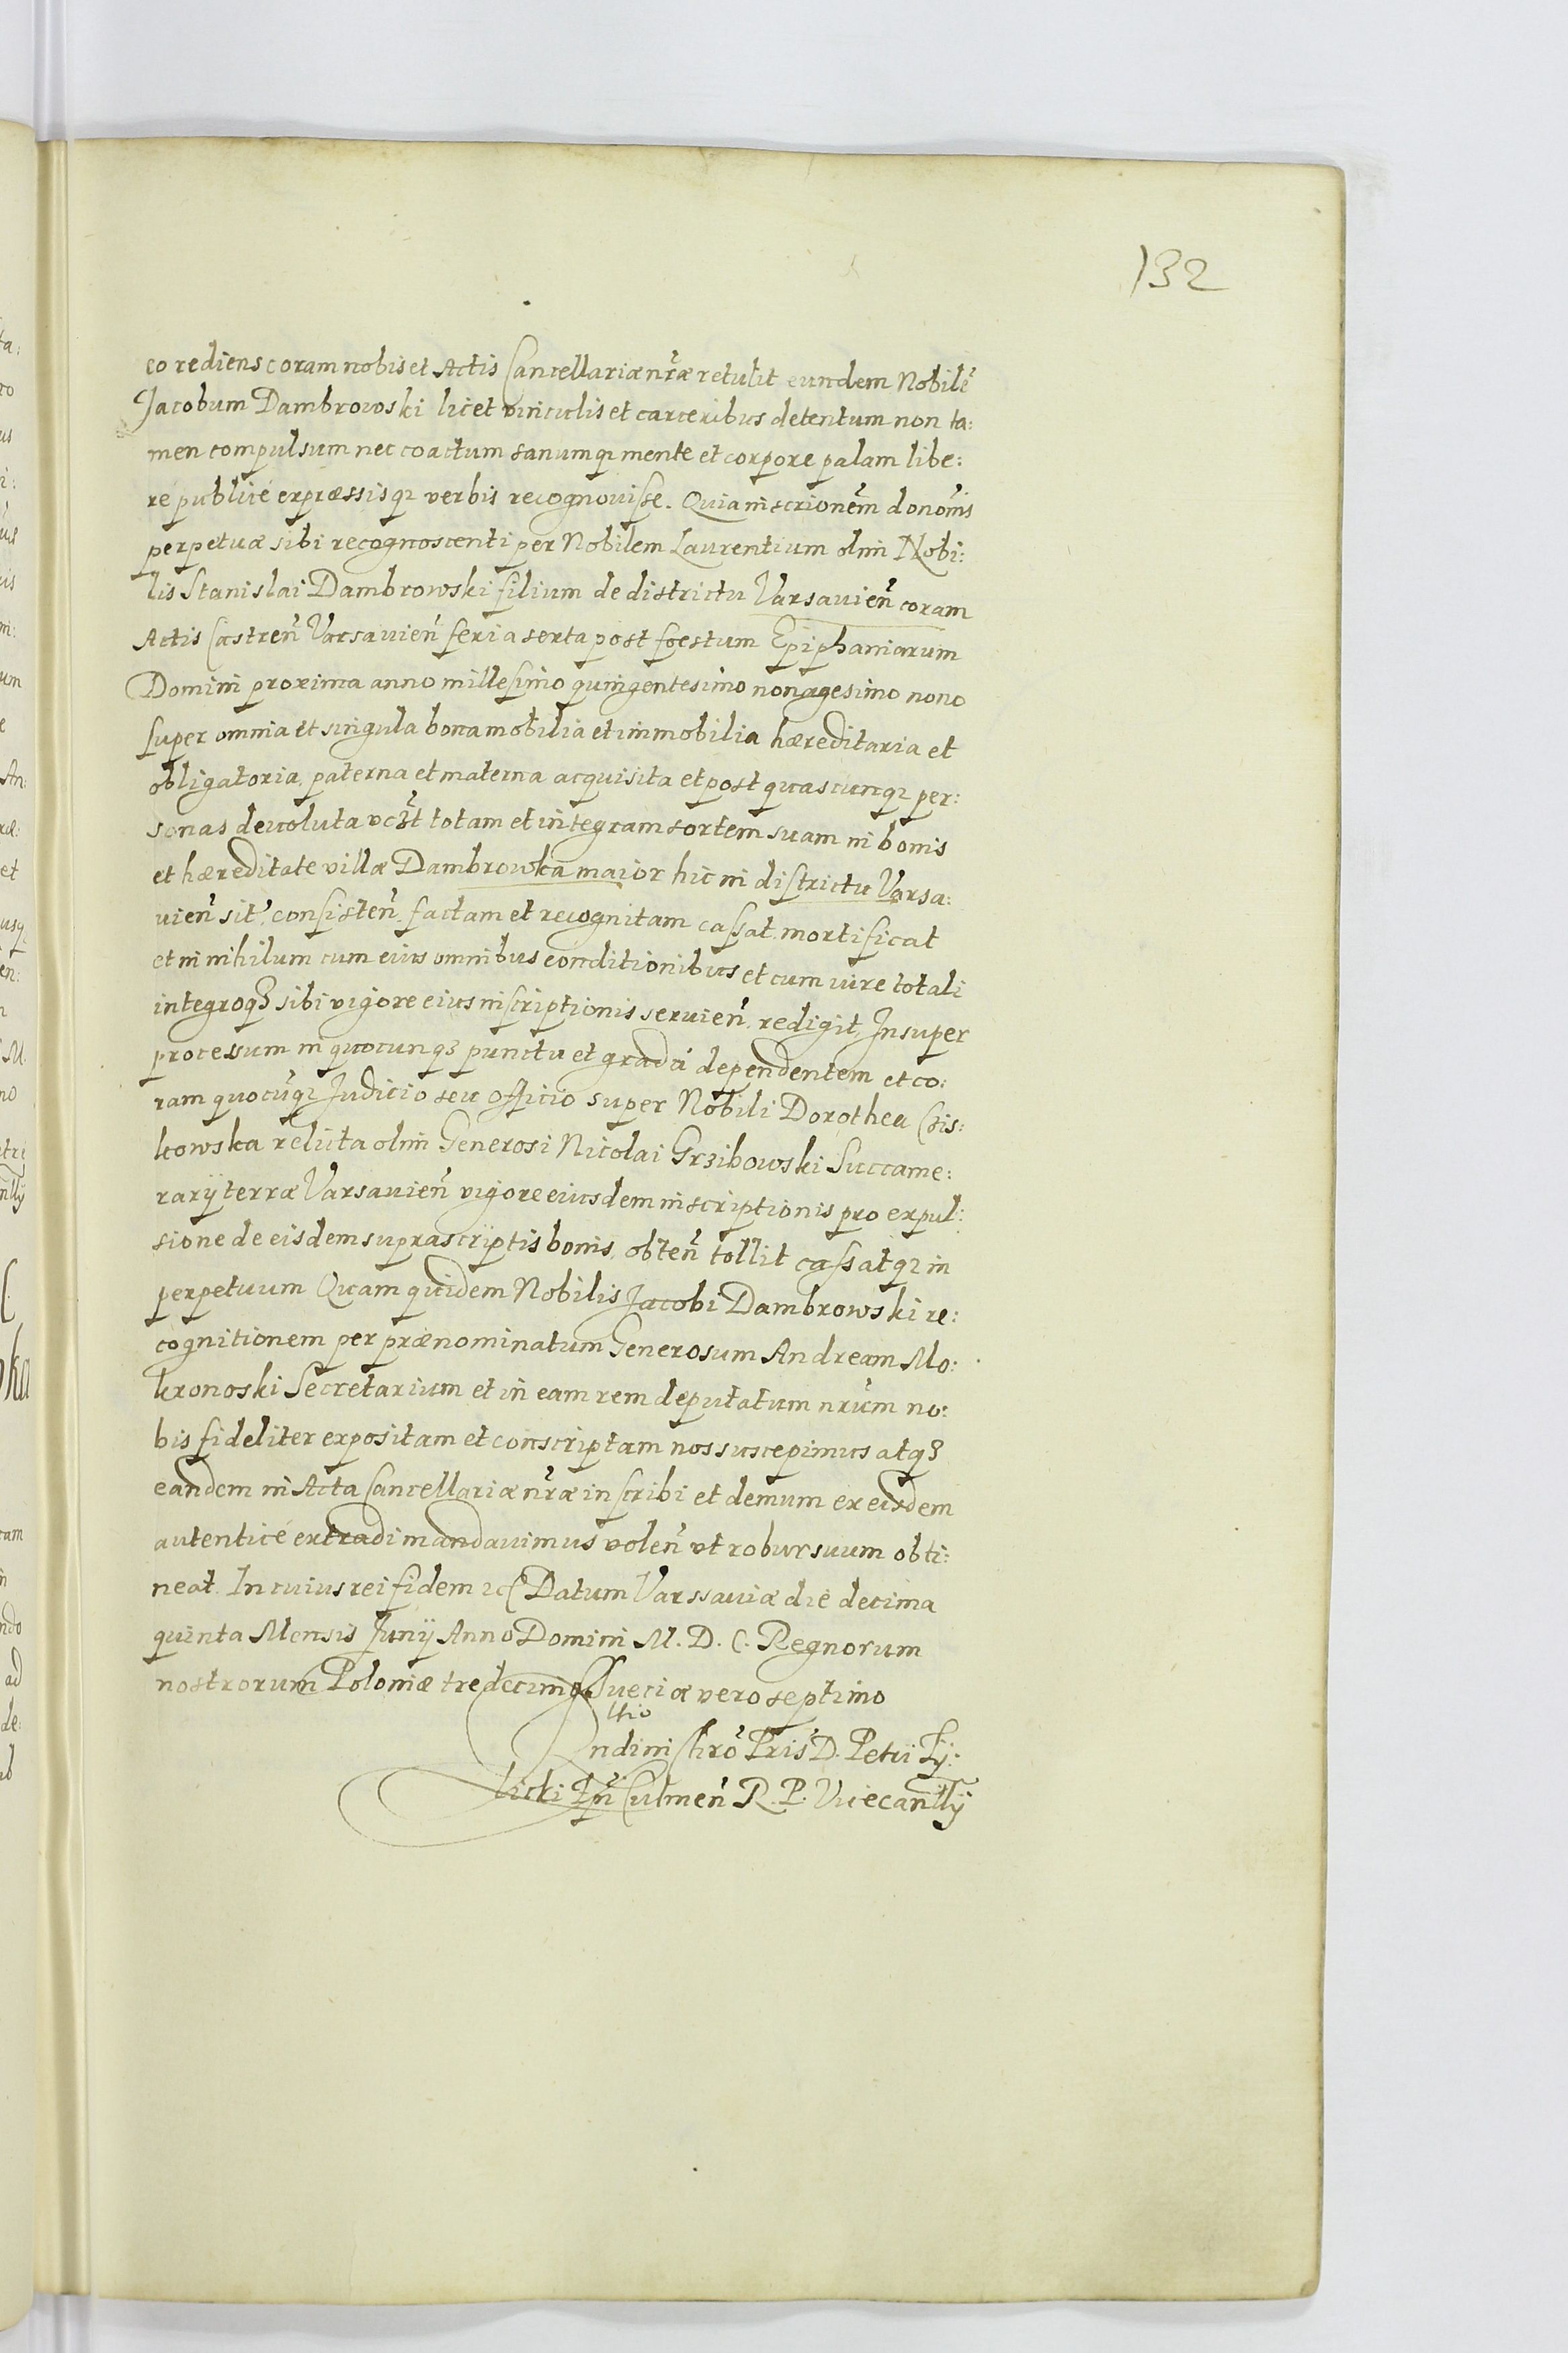 132
eo rediens coram nobis et Actis Cancellariæ nr̃æ retulit eundem Nobilẽ
Jacobum Dambrowski licet vinculis et carceribus detentum non ta:
men compulsum nec coactum sanumq; mente et corpore palam libe:
rè publicé expræssisq; verbis recognovisse. Quia inscrionẽm donõnis
perpetuæ sibi recognoscenti per Nobilem Laurentium olim Nobi:
lis Stanislai Dambrowski filium de districtu Varsavieñ coram
Actis Castreñ Varsavieñ feria sexta post foestum Epiphaniarum
Domini proxima anno millesimo quingentesimo nonagesimo nono
super omnia et singula bona mobilia et immobilia hæreditaria et
obligatoria, paterna et materna acquisita et post quascunq; per:
sonas devoluta vcz̃t totam et integram sortem suam in bonis
et hæreditate villæ Dambrowka maior hic in districtu Varsa:
vieñ sit̃. consisteñ. factam et recognitam cassat, mortificat
et in nihilum cum eius omnibus conditionibus et cum iure totali
integroq; sibi vigore eius inscriptionis servieñ. redigit, Insuper
processum in quocunq; punctu et gradu dependentem et co:
ram quocũq; Judicio seu officio super Nobili Dorothea Chis:
kowska relicta olim Generosi Nicolai Grzibowski Succame:
rarij terræ Varsavieñ vigore eiusdem inscriptionis pro expul:
sione de eisdem suprascriptis bonis, obteñ tollit cassatq; in
perpetuum Quam quidem Nobilis Jacobi Dambrowski re:
cognitionem per prænominatum Generosum Andream Mo:
kronoski Secretarium et in eam rem deputatum nrũm no:
bis fideliter expositam et conscriptam nos suscepimus atq;
eandem in Acta Cancellariæ nr̃æ inscribi et demum ex eisdem
autenticé extradi mandavimus voleñ vt robur suum obti:
neat. In cuius rei fidem &c Datum Varssaviæ die decima
quinta Mensis Junij Anno Domini M. D. C. Regnorum
nostrorum Poloniæ tredecimo Sueciæ vero septimo
ndini Chrõ Pris̃ D. Petri Ty:
licki Ep̃i Culmeñ R. P. Vicecanllij